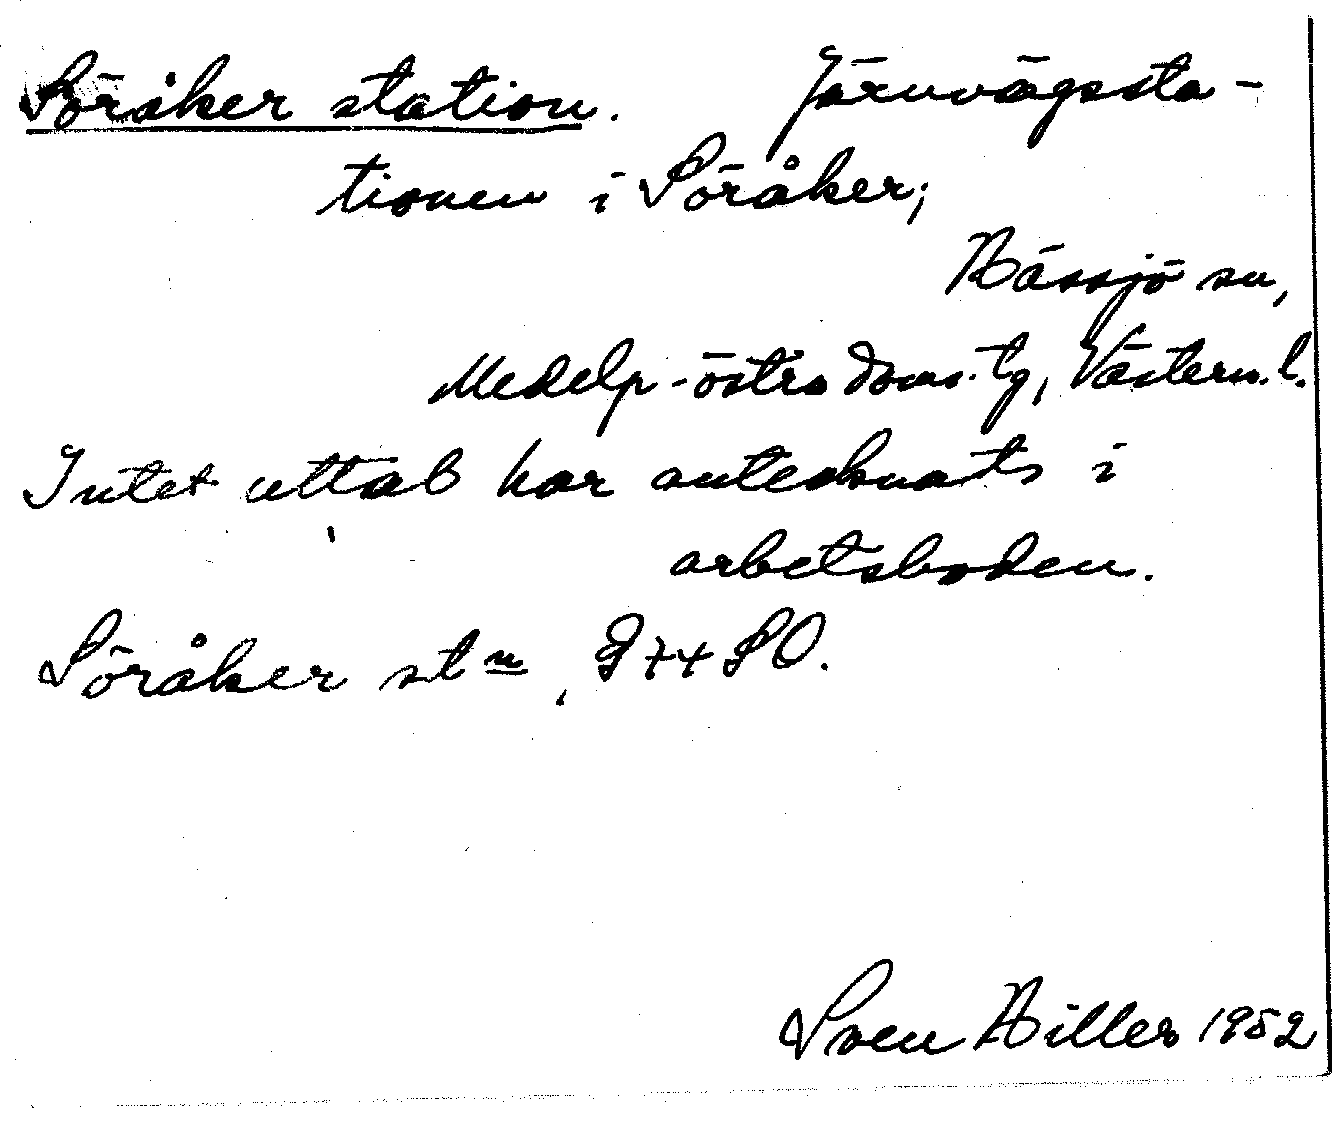 Söråker station. Järnvägssta-
tionen i Söråker;
Hässjö sn,
Medelp. östra doms. tg, Västern. l.
Intet uttal har antecknats i
arbetsboden.
Söråker stn, 974 SO.
Sven Hiller 1952